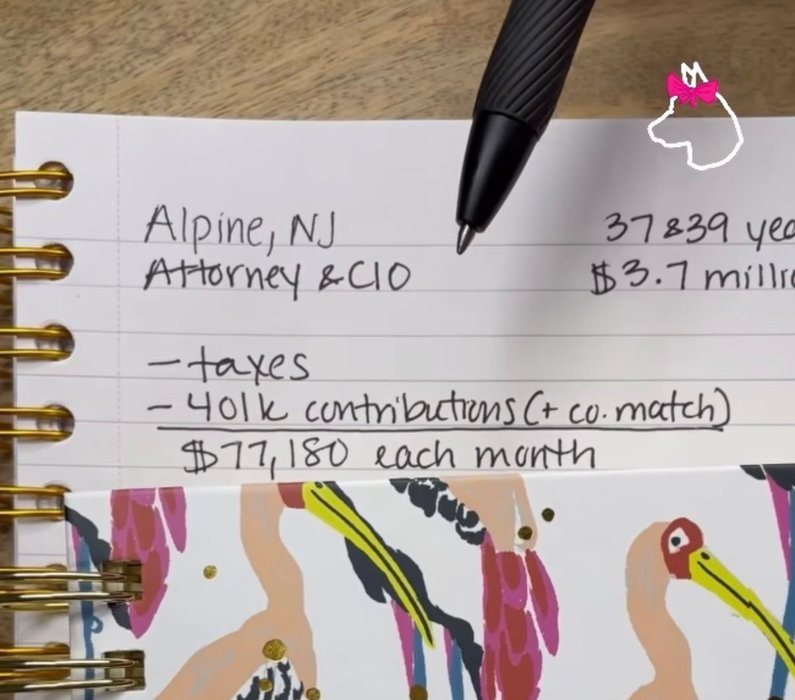 Alpine, NJ 37&39 yea
Attorney & CIO $3.7 millio
- taxes
- 401k contributions (+ co. match)
$77,180 each month